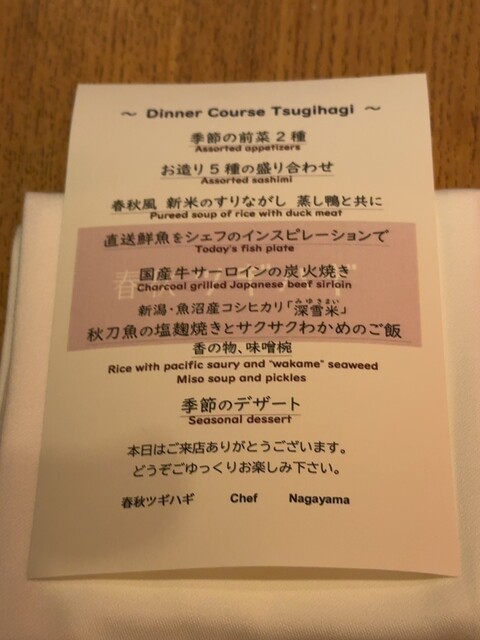 ～ Dinner Course Tsugihagi ～
季節の前菜２種
Assorted appetizers
お造り５種の盛り合わせ
Assorted sashimi
春秋風 新米のすりながし 蒸し鴨と共に
Pureed soup of rice with duck meat
直送鮮魚をシェフのインスピレーションで
Today's fish plate
国産牛サーロインの炭火焼き
Charcoal grilled Japanese beef sirloin
みゆきまい
新潟・魚沼産コシヒカリ「深雪米」
秋刀魚の塩麹焼きとサクサクわかめのご飯
香の物、味噌椀
Rice with pacific saury and "wakame" seaweed
Miso soup and pickles
季節のデザート
Seasonal dessert
本日はご来店ありがとうございます。
どうぞごゆっくりお楽しみ下さい。
春秋ツギハギ Chef Nagayama